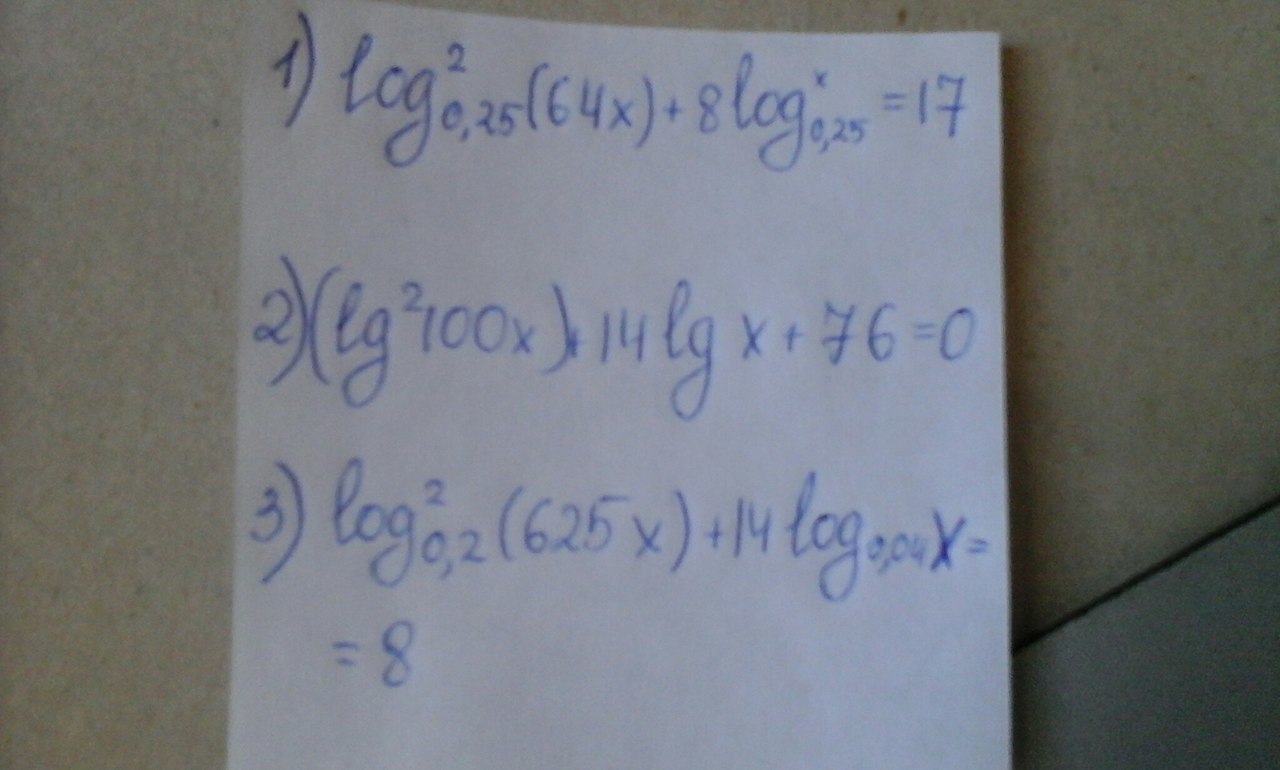 1) log²₀,₂₅(64x) + 8 logˣ₀,₂₅ = 17
2) (lg²100x) + 14 lg x + 76 = 0
3) log²₀,₂(625x) + 14 log₀,₀₄x =
= 8